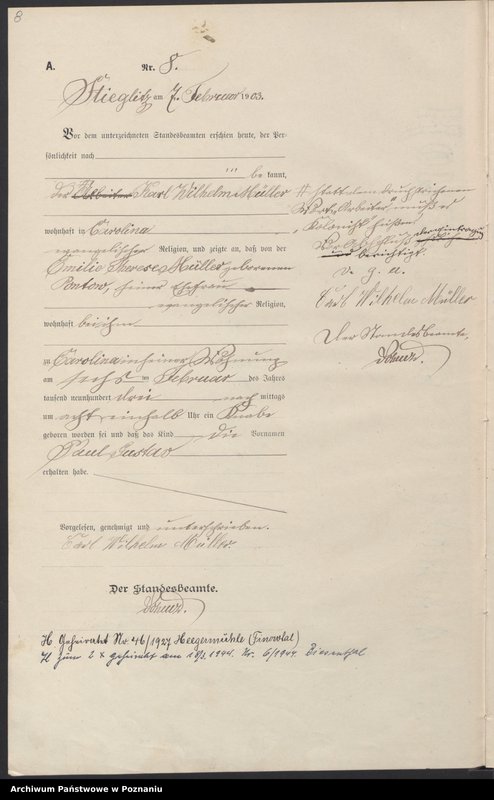 8
A.
Nr. 8.
Stieglitz am 7. Februar 1903.
Vor dem unterzeichneten Standesbeamten erschien heute, der Per-
sönlichkeit nach
be kannt,
der Arbeiter Karl Wilhelm Müller
wohnhaft in Carolina
evangelischer Religion, und zeigte an, daß von der
Emilie Therese Müller, geborenen
Pontow, seiner Ehefrau
evangelischer Religion,
wohnhaft bei ihm
zu Carolina in seiner Wohnung
am sechs ten Februar des Jahres
tausend neunhundert drei nach mittags
um acht einhalb Uhr ein Knabe
geboren worden sei und daß das Kind die Vornamen
Paul Gustav
erhalten habe.
Vorgelesen, genehmigt und unterschrieben.
Carl Wilhelm Müller.
Der Standesbeamte.
statt des durchstrichenen
Wortes Arbeiter muß es
Kolonist heißen
berichtigt
v. g. u.
Carl Wilhelm Müller
Der Standesbeamte,
H Geheiratet Nr. 46/1927 Heegermühle (Finowtal)
H zum 2 x geheiratet am 1944. Nr. 6/1944. Biesenthal
Archiwum Państwowe w Poznaniu